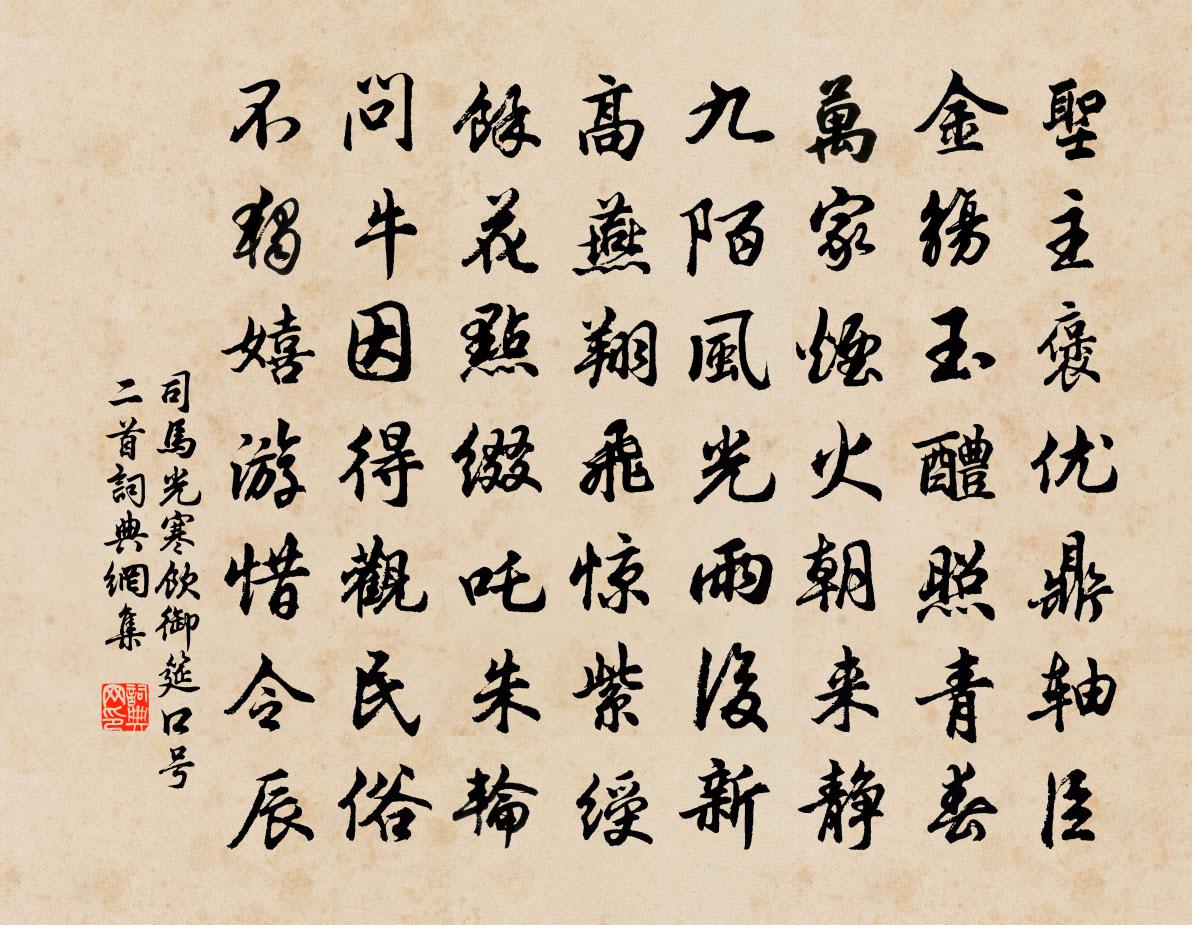 聖主褒优鼎轴臣
金觴玉醴照青春
萬家煙火朝来静
九陌風光雨後新
高燕翔飛惊紫綬
餘花點綴吒朱輪
問牛因得觀民俗
不獨嬉游惜令辰
司馬光寒飲御筵口号
二首詞典網集
詞典
网印